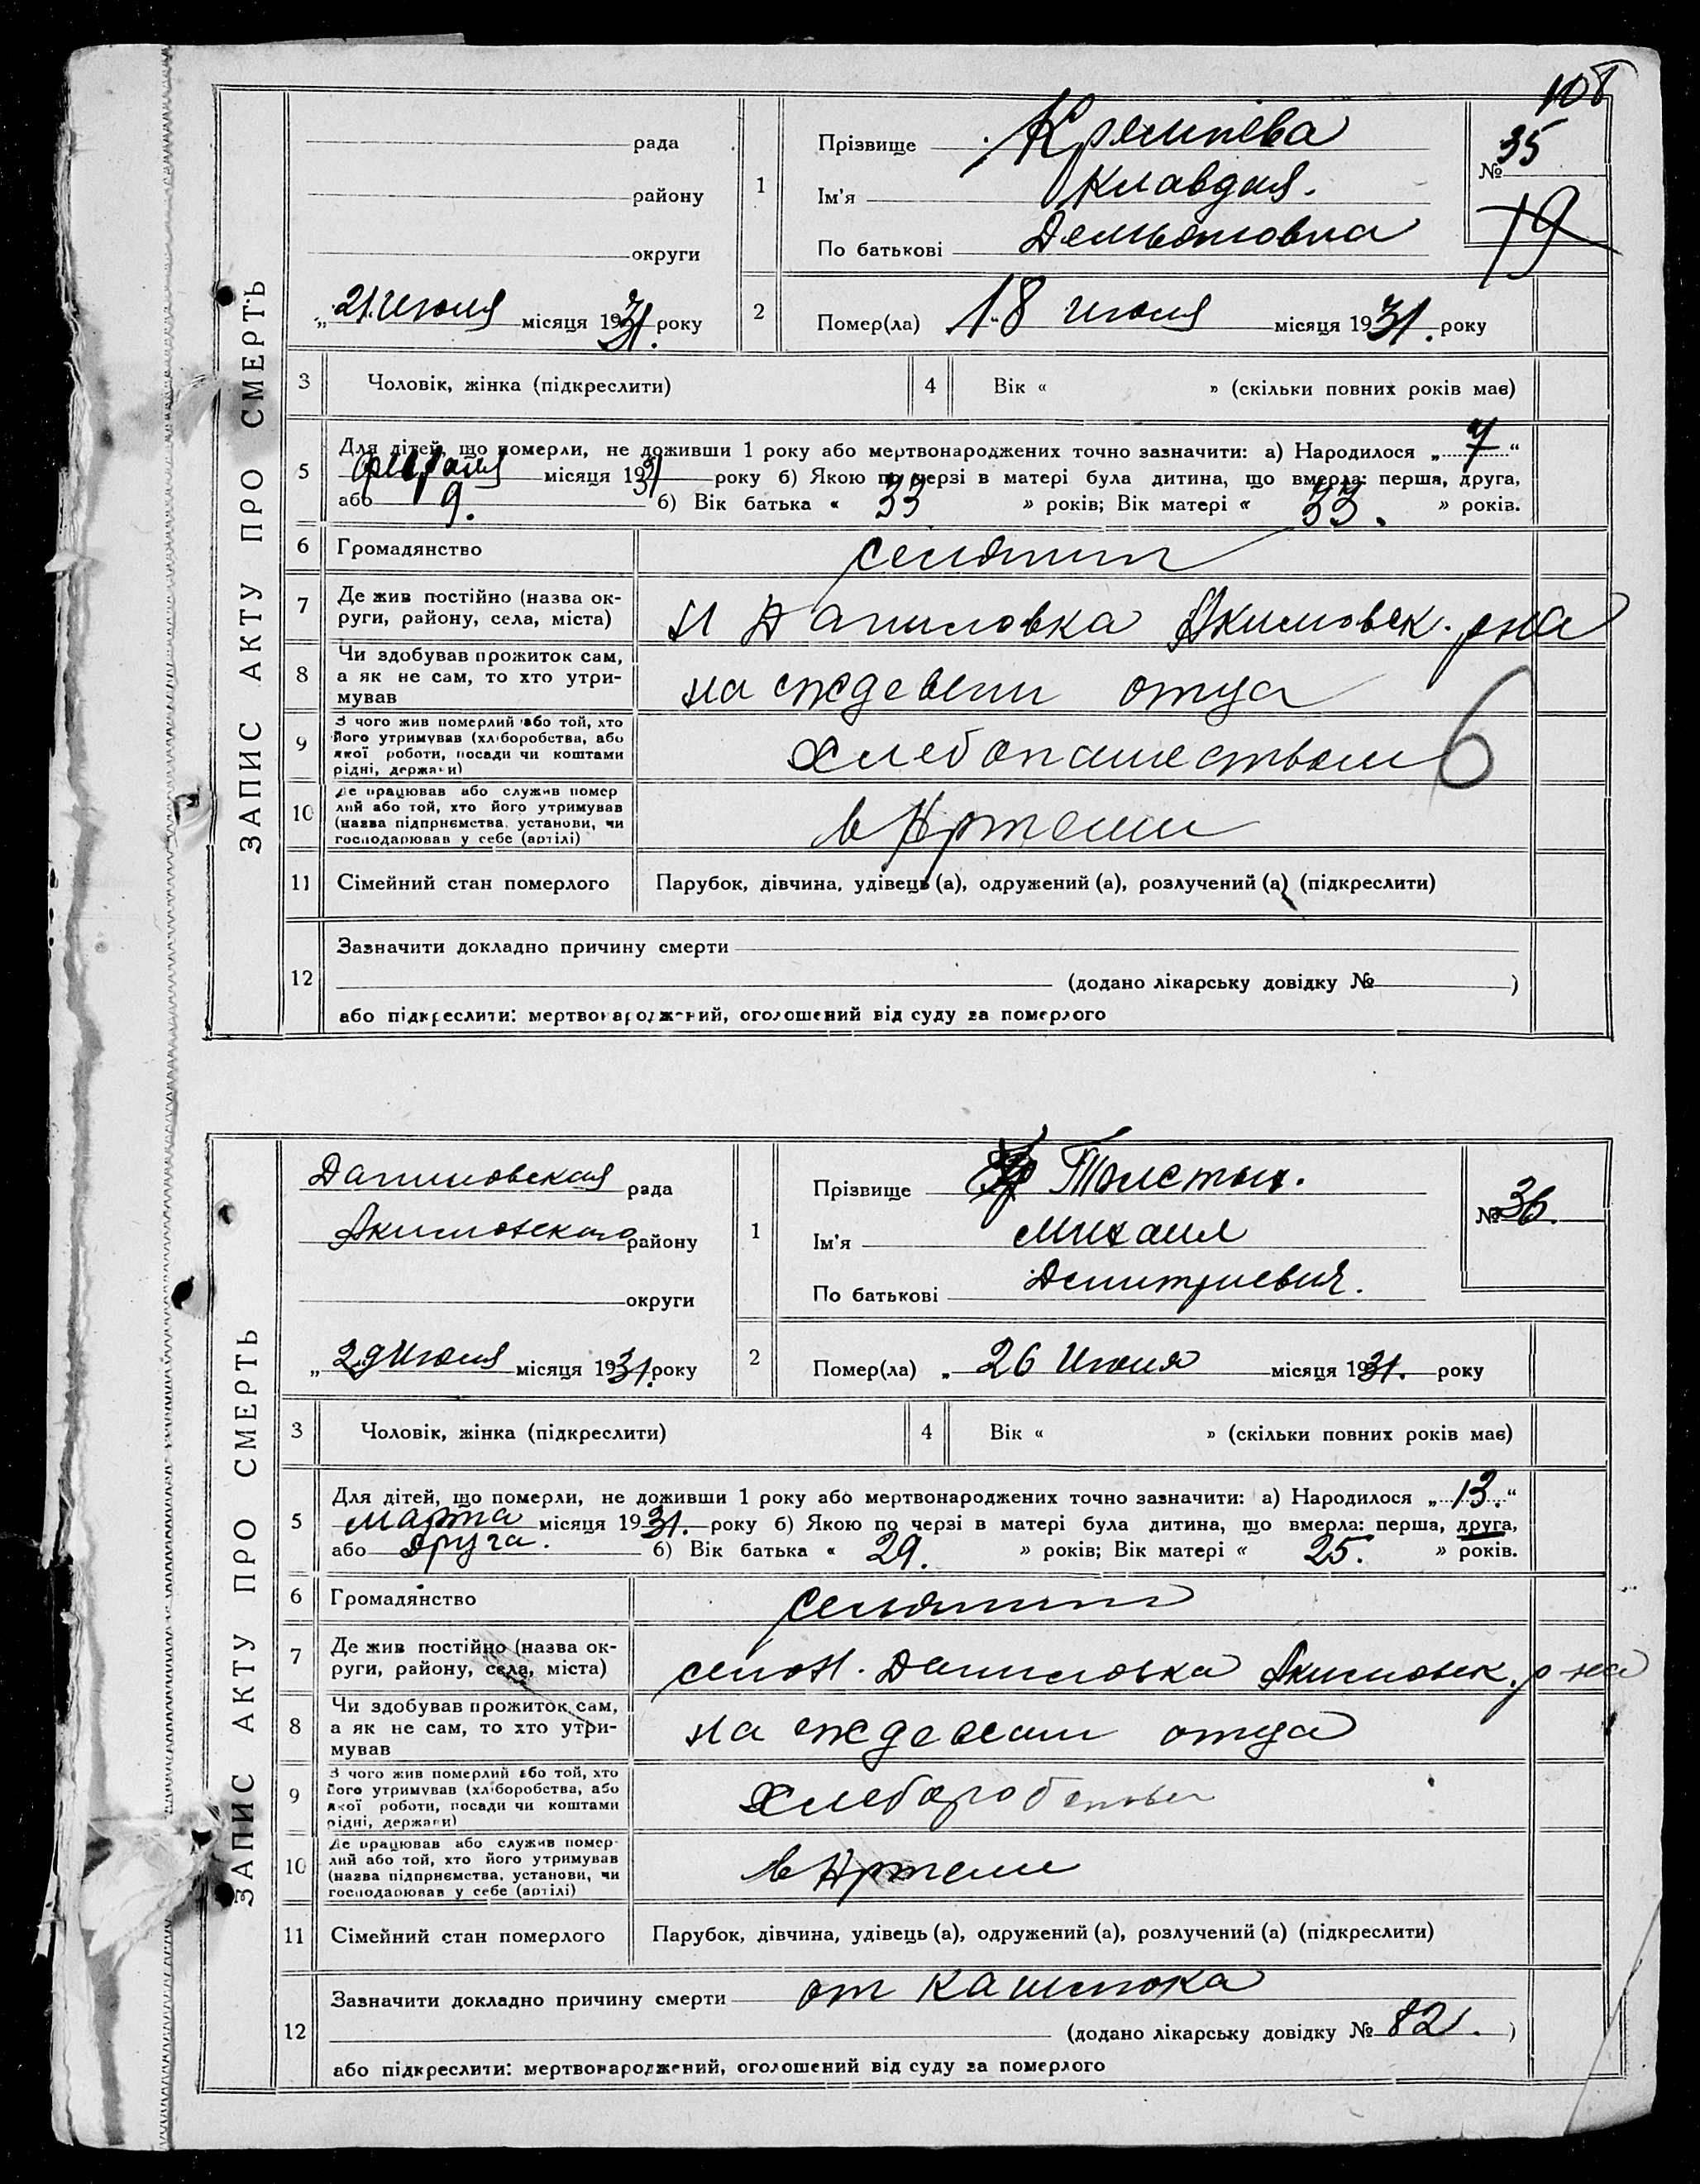 108
ЗАПИС АКТУ ПРО СМЕРТЬ
рада
району
округи
„21 июля місяця 1931. року
1
Прізвище
Ім'я Клавдия.
По батькові Демьяновна
№ 35
19
2 Помер(ла) 18 июля місяця 1931. року
3 Чоловік, жінка (підкреслити)
4 Вік « » (скільки повних років має)
5 Для дітей, що померли, не доживши 1 року або мертвонароджених точно зазначити: а) Народилося „7“
февраля місяця 1931 року б) Якою по черзі в матері була дитина, що вмерла: перша, друга,
або 9. б) Вік батька « 33 » років; Вік матері « 33. » років.
6 Громадянство селянин
7 Де жив постійно (назва ок-
руги, району, села, міста) Н Даниловка Якимовск. рна
8 Чи здобував прожиток сам,
а як не сам, то хто утри-
мував на иждевени отца
9 З чого жив померлий або той, хто
його утримував (хліборобства, або
якої роботи, посади чи коштами
рідні, держави) Хлебопашеством
6
10 Де працював або служив помер
лий або той, хто його утримував
(назва підприємства, установи, чи
господарював у себе (артілі) в Артели
11 Сімейний стан померлого Парубок, дівчина, удівець (а), одружений (а), розлучений (а) (підкреслити)
12 Зазначити докладно причину смерти
(додано лікарську довідку № )
або підкреслити: мертвонароджений, оголошений від суду за померлого
ЗАПИС АКТУ ПРО СМЕРТЬ
Даниловская рада
Акимовского району
округи
„29 Июля місяця 1931. року
1
Прізвище Толстых.
Ім'я Михаил
По батькові Дмитриевич.
№ 36.
2 Помер(ла) „26 Июля місяця 1931. року
3 Чоловік, жінка (підкреслити)
4 Вік « » (скільки повних років має)
5 Для дітей, що померли, не доживши 1 року або мертвонароджених точно зазначити: а) Народилося „13.“
марта місяця 1931. року б) Якою по черзі в матері була дитина, що вмерла: перша, друга,
або друга. б) Вік батька « 29. » років; Вік матері « 25. » років.
6 Громадянство селянин
7 Де жив постійно (назва ок-
руги, району, села, міста) село Н. Даниловка Акимовск. р-на
8 Чи здобував прожиток сам,
а як не сам, то хто утри-
мував на иждевени отца
9 З чого жив померлий або той, хто
його утримував (хліборобства, або
якої роботи, посади чи коштами
рідні, держави)
10 Де працював або служив помер-
лий або той, хто його утримував
(назва підприємства, установи, чи
господарював у себе (артілі) в Артели
11 Сімейний стан померлого Парубок, дівчина, удівець (а), одружений (а), розлучений (а) (підкреслити)
12 Зазначити докладно причину смерти от кашлюка
(додано лікарську довідку № 82. )
або підкреслити: мертвонароджений, оголошений від суду за померлого